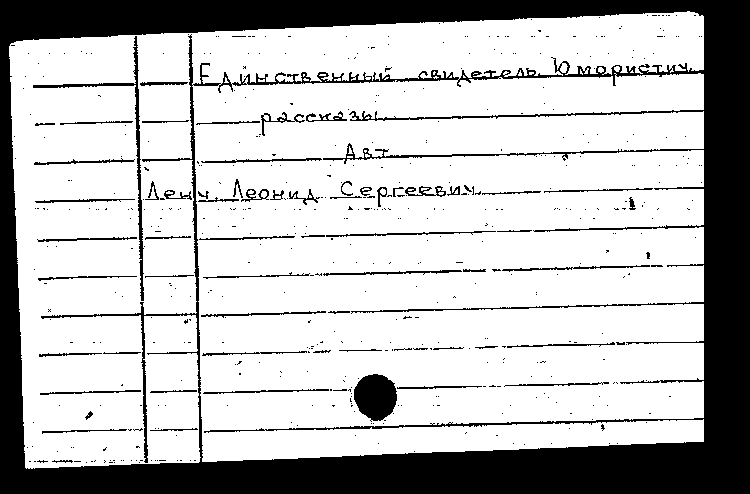 Единственный свидетель. Юмористич.
рассказы.
Авт.
Ленч, Леонид Сергеевич.